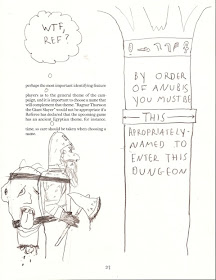 WTF,
REF?
perhaps the most important identifying feature
players as to the general theme of the cam-
paign, and it is important to choose a name that
will complement that theme. "Ragnar Thorson
the Giant Slayer" would not be appropriate if a
Referee has declared that the upcoming game
has an ancient Egyptian theme, for instance.
time, so care should be taken when choosing a
name.
BY ORDER
OF ANUBIS
YOU MUST BE
THIS
APROPRIATELY-
NAMED TO
ENTER THIS
DUNGEON